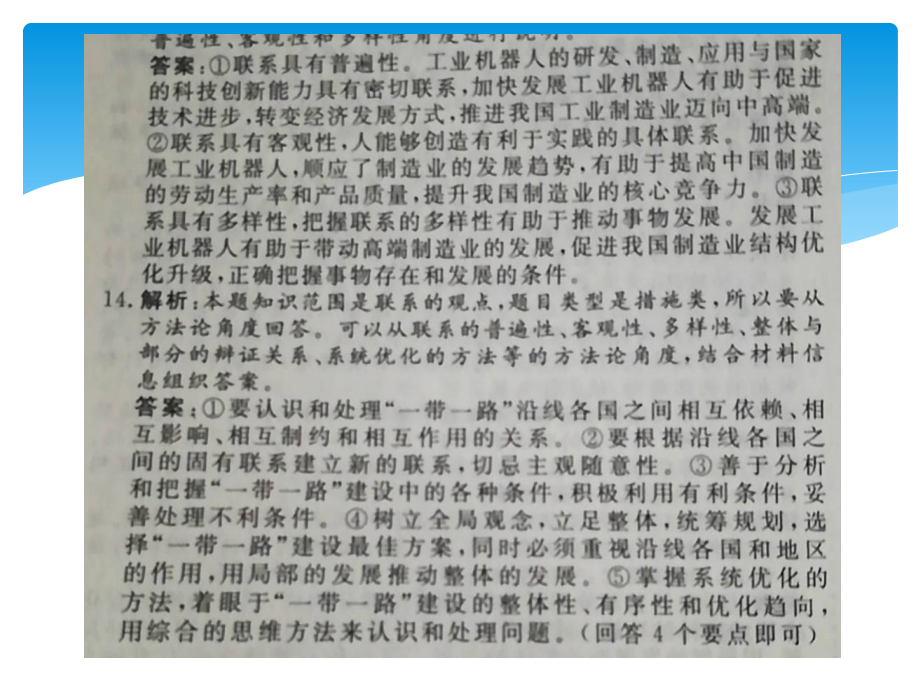 普遍性、客观性和多样性角度进行说明。
答案:①联系具有普遍性。工业机器人的研发、制造、应用与国家
的科技创新能力具有密切联系,加快发展工业机器人有助于促进
技术进步,转变经济发展方式,推进我国工业制造业迈向中高端。
②联系具有客观性,人能够创造有利于实践的具体联系。加快发
展工业机器人,顺应了制造业的发展趋势,有助于提高中国制造
的劳动生产率和产品质量,提升我国制造业的核心竞争力。③联
系具有多样性,把握联系的多样性有助于推动事物发展。发展工
业机器人有助于带动高端制造业的发展,促进我国制造业结构优
化升级,正确把握事物存在和发展的条件。
14.解析:本题知识范围是联系的观点,题目类型是措施类,所以要从
方法论角度回答。可以从联系的普遍性、客观性、多样性、整体与
部分的辩证关系、系统优化的方法等的方法论角度,结合材料信
息组织答案。
答案:①要认识和处理“一带一路”沿线各国之间相互依赖、相
互影响、相互制约和相互作用的关系。②要根据沿线各国之
间的固有联系建立新的联系,切忌主观随意性。③善于分析
和把握“一带一路”建设中的各种条件,积极利用有利条件,妥
善处理不利条件。④树立全局观念,立足整体,统筹规划,选
择“一带一路”建设最佳方案,同时必须重视沿线各国和地区
的作用,用局部的发展推动整体的发展。⑤掌握系统优化的
方法,着眼于“一带一路”建设的整体性、有序性和优化趋向,
用综合的思维方法来认识和处理问题。(回答4个要点即可)